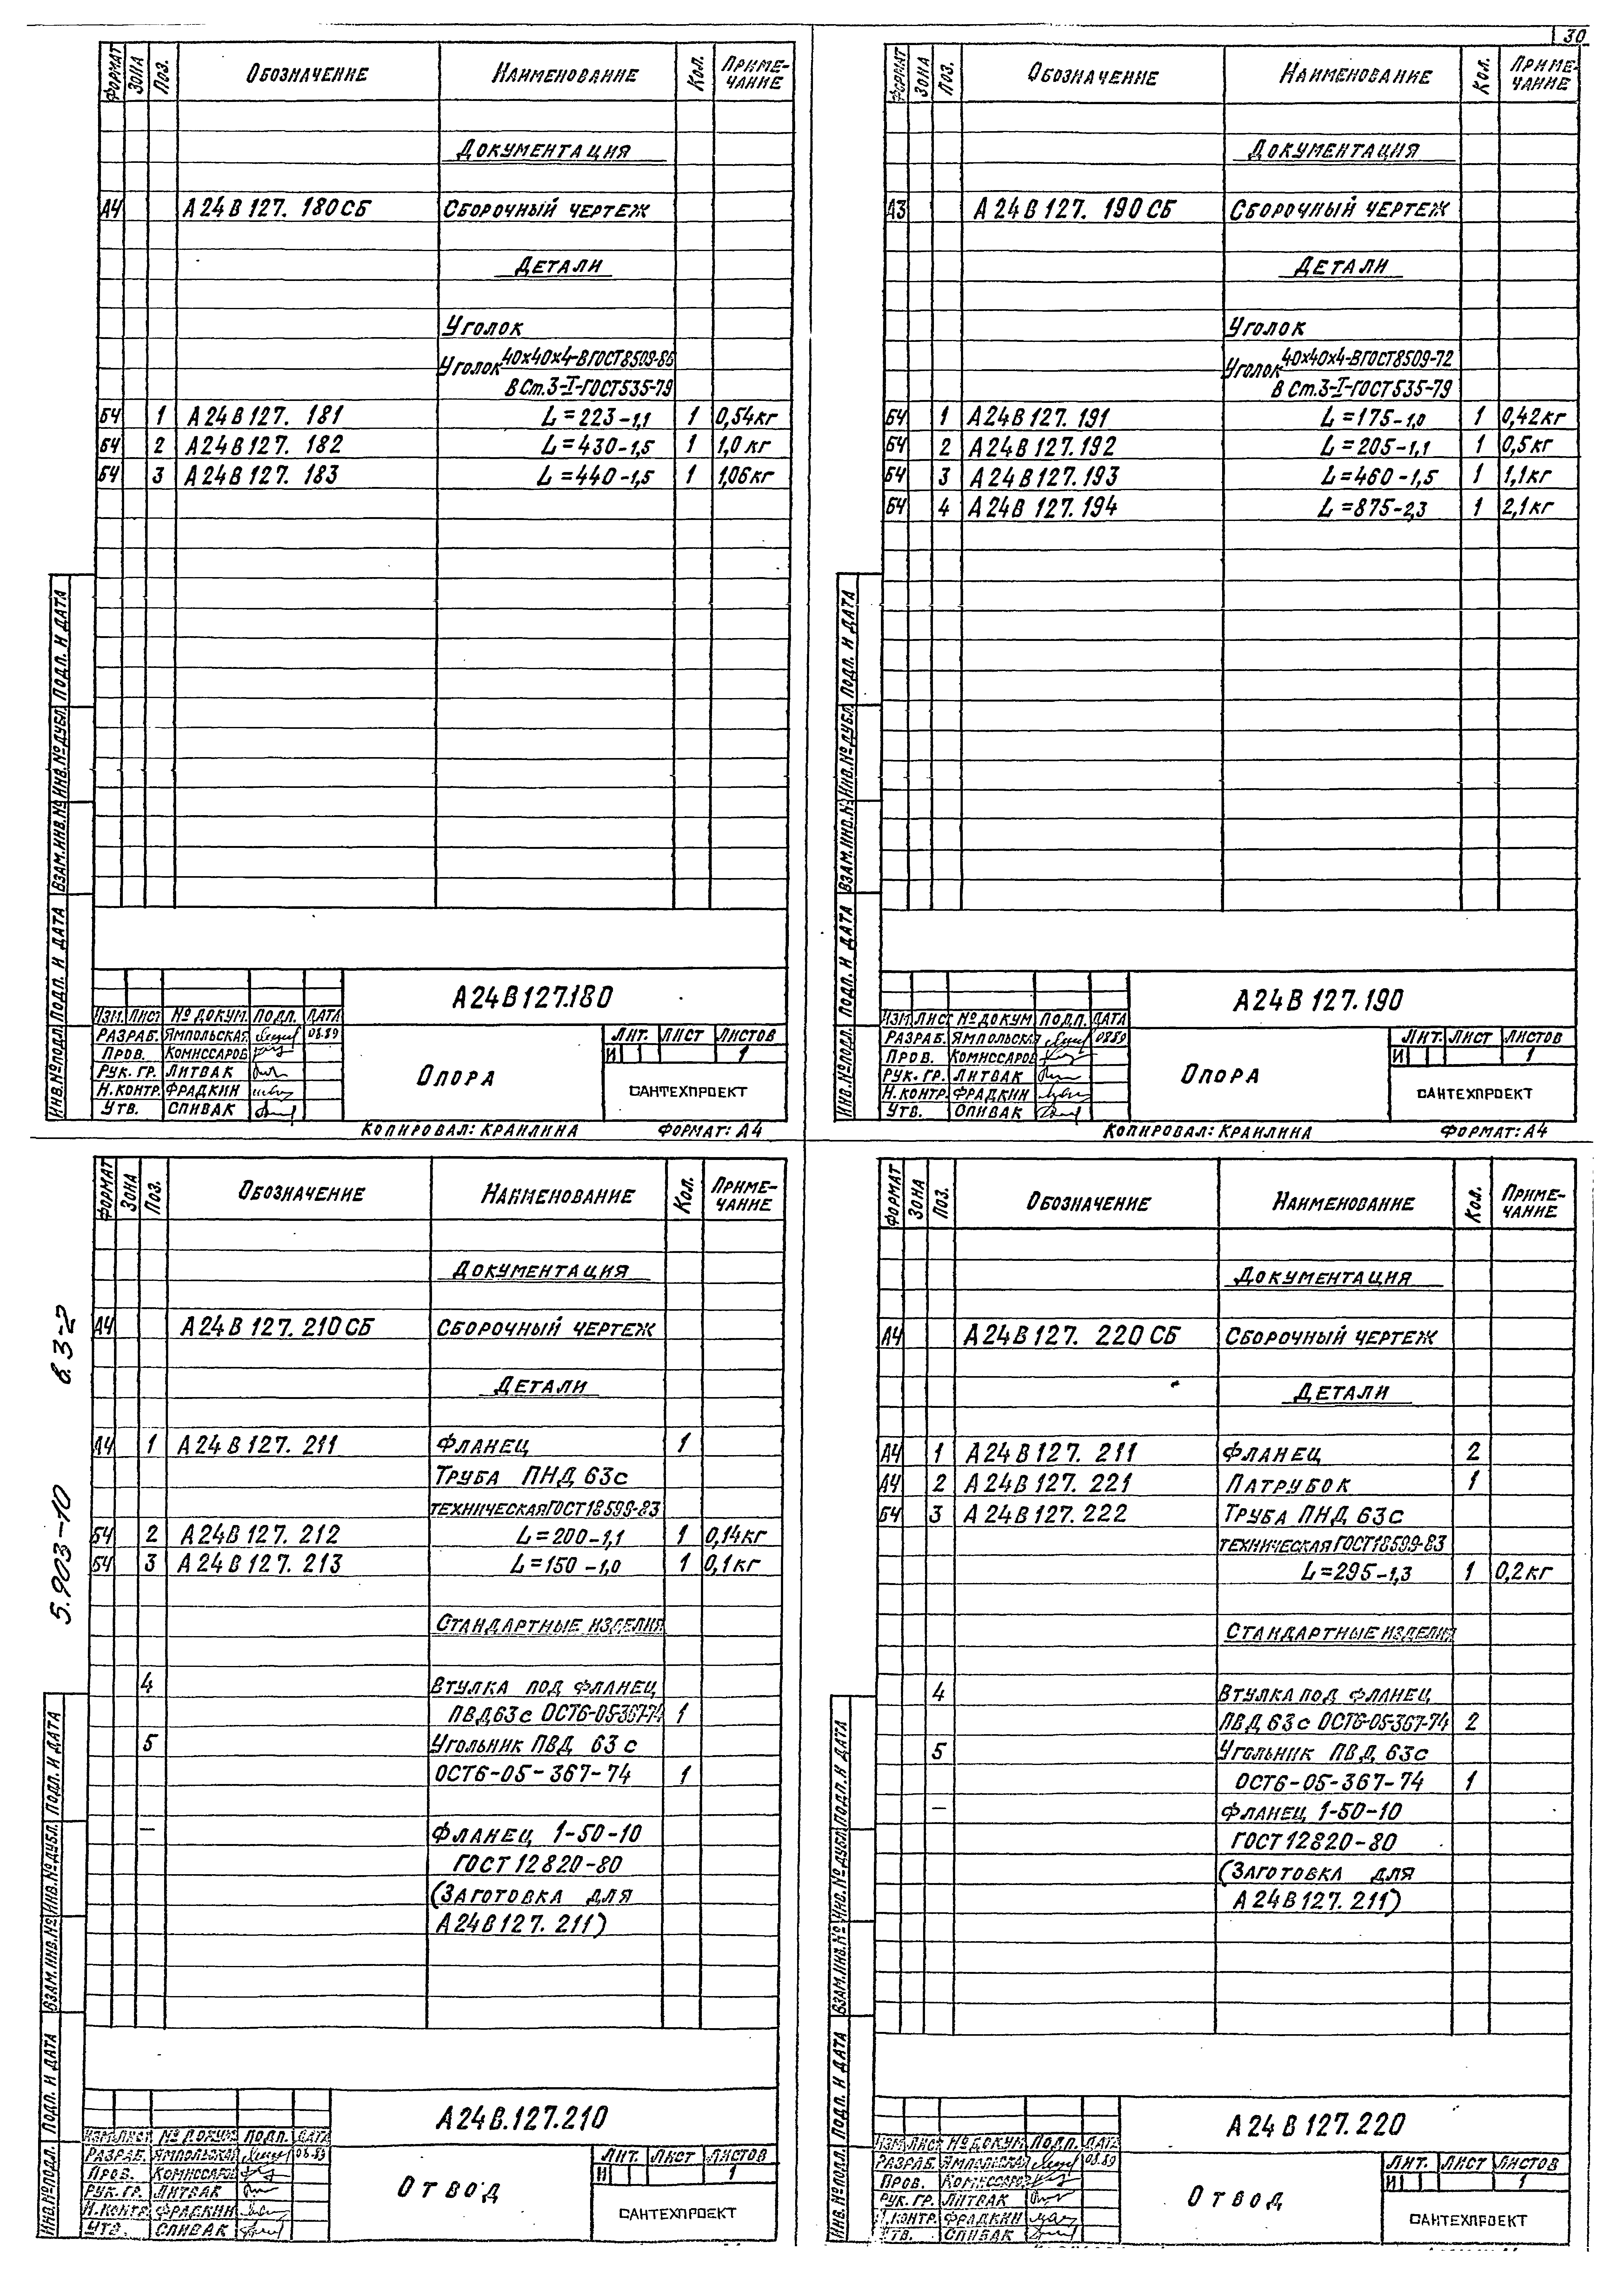 30
ФОРМАТ ЗОНА ПОЗ. ОБОЗНАЧЕНИЕ НАИМЕНОВАНИЕ КОЛ. ПРИМЕ-ЧАНИЕ
ДОКУМЕНТАЦИЯ
А4 А24В127. 180СБ СБОРОЧНЫЙ ЧЕРТЕЖ
ДЕТАЛИ
УГОЛОК
УГОЛОК 40х40х4-ВГОСТ8509-86
ВСт.3-I-ГОСТ535-79
БЧ 1 А24В127. 181 L=223-1,1 1 0,54кг
БЧ 2 А24В127. 182 L=430-1,5 1 1,0кг
БЧ 3 А24В127. 183 L=440-1,5 1 1,06кг
ИНВ.№ПОДЛ. ПОДП. И ДАТА ВЗАМ.ИНВ.№ ИНВ.№ДУБЛ. ПОДП. И ДАТА
А24В127.180
ИЗМ. ЛИСТ № ДОКУМ. ПОДП. ДАТА
РАЗРАБ. ЯМПОЛЬСКАЯ 08.89
ПРОВ. КОМИССАРОВ
РУК. ГР. ЛИТВАК
Н.КОНТР. ФРАДКИН
УТВ. СПИВАК
ОПОРА
ЛИТ. ЛИСТ ЛИСТОВ
И 1
САНТЕХПРОЕКТ
КОПИРОВАЛ: КРАИЛИНА ФОРМАТ: А4
ФОРМАТ ЗОНА ПОЗ. ОБОЗНАЧЕНИЕ НАИМЕНОВАНИЕ КОЛ. ПРИМЕ-ЧАНИЕ
ДОКУМЕНТАЦИЯ
А3 А24В127. 190СБ СБОРОЧНЫЙ ЧЕРТЕЖ
ДЕТАЛИ
УГОЛОК
УГОЛОК 40х40х4-ВГОСТ8509-72
ВСт.3-I-ГОСТ535-79
БЧ 1 А24В127.191 L=175-1,0 1 0,42кг
БЧ 2 А24В127.192 L=205-1,1 1 0,5кг
БЧ 3 А24В127.193 L=460-1,5 1 1,1кг
БЧ 4 А24В 127.194 L=875-2,3 1 2,1кг
ИНВ.№ПОДЛ. ПОДП. И ДАТА ВЗАМ.ИНВ.№ ИНВ.№ДУБЛ. ПОДП. И ДАТА
А24В127.190
ИЗМ. ЛИСТ № ДОКУМ ПОДП. ДАТА
РАЗРАБ. ЯМПОЛЬСКАЯ 08.89
ПРОВ. КОМИССАРОВ
РУК. ГР. ЛИТВАК
Н.КОНТР. ФРАДКИН
УТВ. СПИВАК
ОПОРА
ЛИТ. ЛИСТ ЛИСТОВ
И 1
САНТЕХПРОЕКТ
КОПИРОВАЛ: КРАИЛИНА ФОРМАТ: А4
5.903-10 в.3-2
ФОРМАТ ЗОНА ПОЗ. ОБОЗНАЧЕНИЕ НАИМЕНОВАНИЕ КОЛ. ПРИМЕ-ЧАНИЕ
ДОКУМЕНТАЦИЯ
А4 А24В127. 210СБ СБОРОЧНЫЙ ЧЕРТЕЖ
ДЕТАЛИ
А4 1 А24В127. 211 ФЛАНЕЦ 1
ТРУБА ПНД 63с
ТЕХНИЧЕСКАЯГОСТ18599-83
БЧ 2 А24В127. 212 L=200-1,1 1 0,14кг
БЧ 3 А24В127. 213 L=150-1,0 1 0,1кг
СТАНДАРТНЫЕ ИЗДЕЛИЯ
4 ВТУЛКА ПОД ФЛАНЕЦ
ПВД63с ОСТ6-05-367-74 1
5 УГОЛЬНИК ПВД 63с
ОСТ6-05-367-74 1
— ФЛАНЕЦ 1-50-10
ГОСТ12820-80
(ЗАГОТОВКА ДЛЯ
А24В127. 211)
ИНВ.№ПОДЛ. ПОДП. И ДАТА ВЗАМ.ИНВ.№ ИНВ.№ДУБЛ. ПОДП. И ДАТА
А24В.127.210
ИЗМ ЛИСТ № ДОКУМ ПОДП. ДАТА
РАЗРАБ. ЯМПОЛЬСКАЯ 08.89
ПРОВ. КОМИССАРОВ
РУК. ГР. ЛИТВАК
Н.КОНТР. ФРАДКИН
УТВ. СПИВАК
ОТВОД
ЛИТ. ЛИСТ ЛИСТОВ
И 1
САНТЕХПРОЕКТ
ФОРМАТ ЗОНА ПОЗ. ОБОЗНАЧЕНИЕ НАИМЕНОВАНИЕ КОЛ. ПРИМЕ-ЧАНИЕ
ДОКУМЕНТАЦИЯ
А4 А24В127. 220СБ СБОРОЧНЫЙ ЧЕРТЕЖ
ДЕТАЛИ
А4 1 А24В127. 211 ФЛАНЕЦ 2
А4 2 А24В127. 221 ПАТРУБОК 1
БЧ 3 А24В127. 222 ТРУБА ПНД 63с
ТЕХНИЧЕСКАЯГОСТ18599-83
L=295-1,3 1 0,2кг
СТАНДАРТНЫЕ ИЗДЕЛИЯ
4 ВТУЛКА ПОД ФЛАНЕЦ
ПВД 63с ОСТ6-05-367-74 2
5 УГОЛЬНИК ПВД 63с
ОСТ6-05-367-74 1
— ФЛАНЕЦ 1-50-10
ГОСТ12820-80
(ЗАГОТОВКА ДЛЯ
А24В127. 211)
ИНВ.№ПОДЛ. ПОДП. И ДАТА ВЗАМ.ИНВ.№ ИНВ.№ДУБЛ. ПОДП. И ДАТА
А24В127.220
ИЗМ ЛИСТ № ДОКУМ ПОДП. ДАТА
РАЗРАБ. ЯМПОЛЬСКАЯ 08.89
ПРОВ. КОМИССАРОВ
РУК. ГР. ЛИТВАК
Н.КОНТР. ФРАДКИН
УТВ. СПИВАК
ОТВОД
ЛИТ. ЛИСТ ЛИСТОВ
И 1
САНТЕХПРОЕКТ